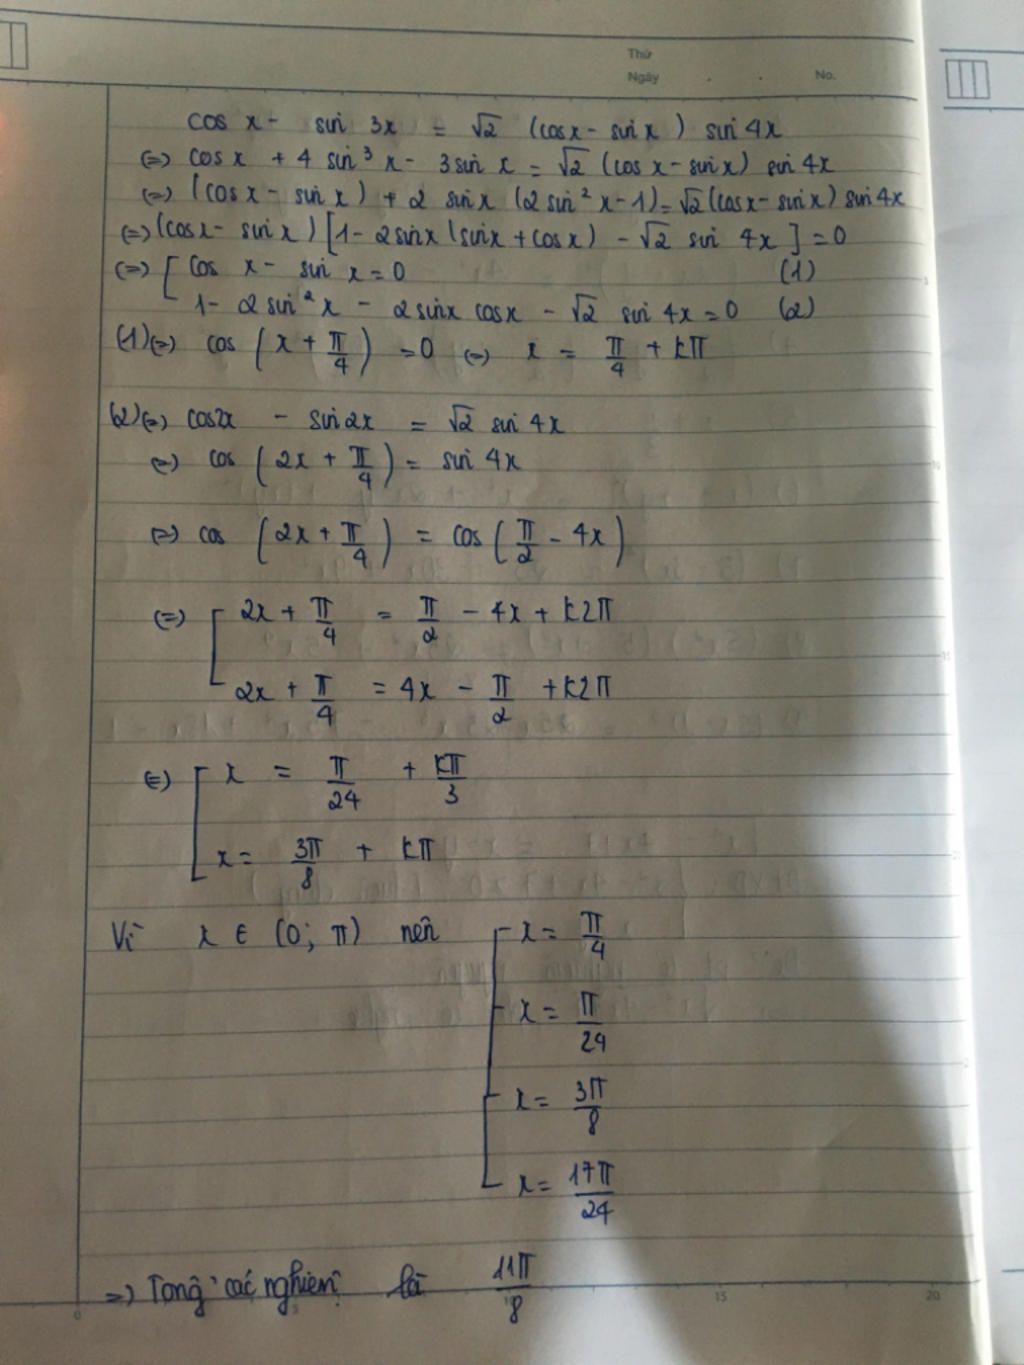 Thứ
Ngày . . No.
cos x - sin 3x = √2 (cosx - sinx) sin 4x
(=) cosx + 4 sin³ x - 3sin x = √2 (cos x - sinx) sin 4x
(=) (cos x - sin x) + 2 sinx (2 sin² x - 1) = √2 (cosx - sinx) sin 4x
(=) (cosx - sin x) [1 - 2sinx (sinx + cosx) - √2 sin 4x] = 0
(=) [ cos x - sin x = 0 (1)
1 - 2 sin² x - 2 sinx cosx - √2 sin 4x = 0 (2)
(1) (=) cos (x + π/4) = 0 (=) x = π/4 + kπ
(2) (=) cos2x - sin 2x = √2 sin 4x
(=) cos (2x + π/4) = sin 4x
(=) cos (2x + π/4) = cos (π/2 - 4x)
(=) [ 2x + π/4 = π/2 - 4x + k2π
2x + π/4 = 4x - π/2 + k2π
(=) [ x = π/24 + kπ/3
x = 3π/8 + kπ
Vì x ∈ (0; π) nên [ x = π/4
x = π/24
x = 3π/8
x = 17π/24
=) Tổng các nghiệm là 11π/8
0 5 10 15 20